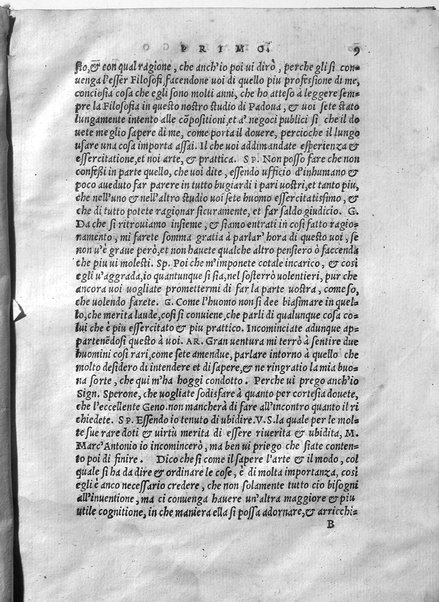 PRIMO. 9
sto, & con qual ragione, che anch'io poi ui dirò, perche gli si con
uenga l'esser Filosofi, facendone uoi di quello piu professione di me,
conciosia cosa che egli sono molti anni, che ho atteso a leggere sem
pre la Filosofia in questo nostro studio di Padoua, & uoi sete stato
lungamente intento alle cōpositioni, et a' negoci publici si che il do
uete meglio sapere di me, come porta il douere, percioche il lungo
usare una cosa importa assai. Il che uoi addimandate esperienza e
essercitatione, et noi arte, & pratica. SP. Non posso fare che non
confeßi in parte quello, che uoi dite, essendo ufficio d'inhumano &
poco aueduto far parere in tutto bugiardi i pari uostri, et tanto piu,
che nell'uno & nell'altro studio uoi sete huomo essercitatissimo, &
che di tutto potete ragionar sicuramente, et far saldo giudicio. G.
Da che si ritrouiamo insieme, & siamo entrati in cosi fatto ragio-
namento, mi farete somma gratia à parlar' hora di questo uoi, se
non u'è graue però, et non hauete qualche altro pensiero ò faccenda
che piu ui molesti. Sp. Poi che m'imponete cotale incarico, & cosi
egli u'aggrada, io quantunque si sia, nel sosterrò uolentieri, pur che
ancora uoi uogliate promettermi di far la parte uostra, come so,
che uolendo farete. G. Come l'huomo non si dee biasimare in quel-
lo, che merita laude, cosi si conuiene, che parli di qualunque cosa co
lui che è piu essercitato & piu prattico. Incominciate adunque ap-
partenēdosi questo à uoi. AR. Gran uentura mi terrò à sentire due
huomini cosi rari, come sete amendue, parlare intorno à quello che
molto desidero di intendere et di sapere, & ne ringratio la mia buo
na sorte, che qui m'ha hoggi condotto. Perche ui prego anch'io
Sign. Sperone, che uogliate sodisfare à quanto per cortesia douete,
che l'eccellente Geno. non mancherà di fare all'incontro quanto il ri
chiedete. SP. Essendo io tenuto di ubidire. V.S. la quale per le mol-
te sue rare doti & uirtù merita di essere riuerita & ubidita, M.
Marc'Antonio io incomincerò, ma ben ui priego che siate conten-
to poi di finire. Dico che si come il sapere l'arte & il modo, col
quale si ha da dire & ordinare le cose, è di molta importanza, cosi
egli è anco necessario credere, che non solamente tutto ciò bisogni
all'inuentione, ma ci conuenga hauere un'altra maggiore & piu
utile cognitione, in che maniera ella si possa adornare, & arricchi-
B